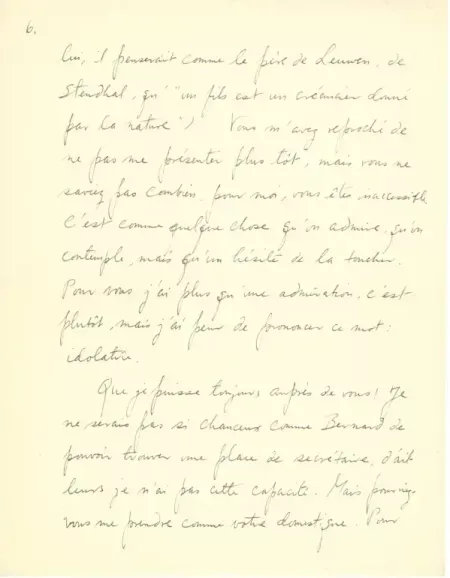 6.
lui, il penserait comme le père de Leuwen, de
Stendhal, qu' "un fils est un créancier donné
par la nature") Vous m'avez reproché de
ne pas me présenter plus tôt, mais vous ne
savez pas combien, pour moi, vous êtes inaccessible,
C'est comme quelque chose qu'on admire, qu'on
contemple, mais qu'on hésite de la toucher.
Pour vous j'ai plus qu'une admiration, c'est
plutôt, mais j'ai peur de prononcer ce mot:
idolatrie.
Que je puisse toujours auprès de vous! Je
ne serais pas si chanceux comme Bernard de
pouvoir trouver une place de secrétaire, d'ail
leurs je n'ai pas cette capacité. Mais pourriez
vous me prendre comme votre domestique. Pour